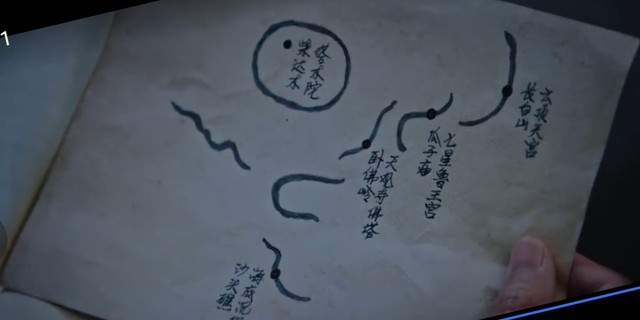 1
塔木陀
柴达木
云顶天宫
长白山
七星鲁王宫
瓜子庙
天观寺佛塔
卧佛岭
海底沉
沙头礁